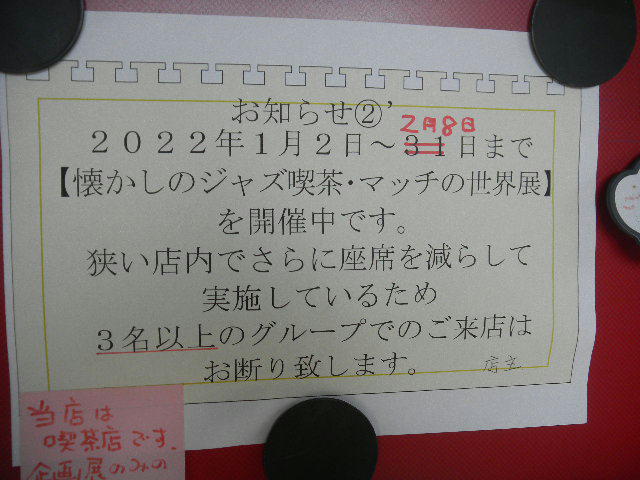 お知らせ②’
2月8日
２０２２年１月２日～３１日まで
【懐かしのジャズ喫茶・マッチの世界展】
を開催中です。
狭い店内でさらに座席を減らして
実施しているため
３名以上のグループでのご来店は
お断り致します。
店主
当店は
喫茶店です。
企画展のみの